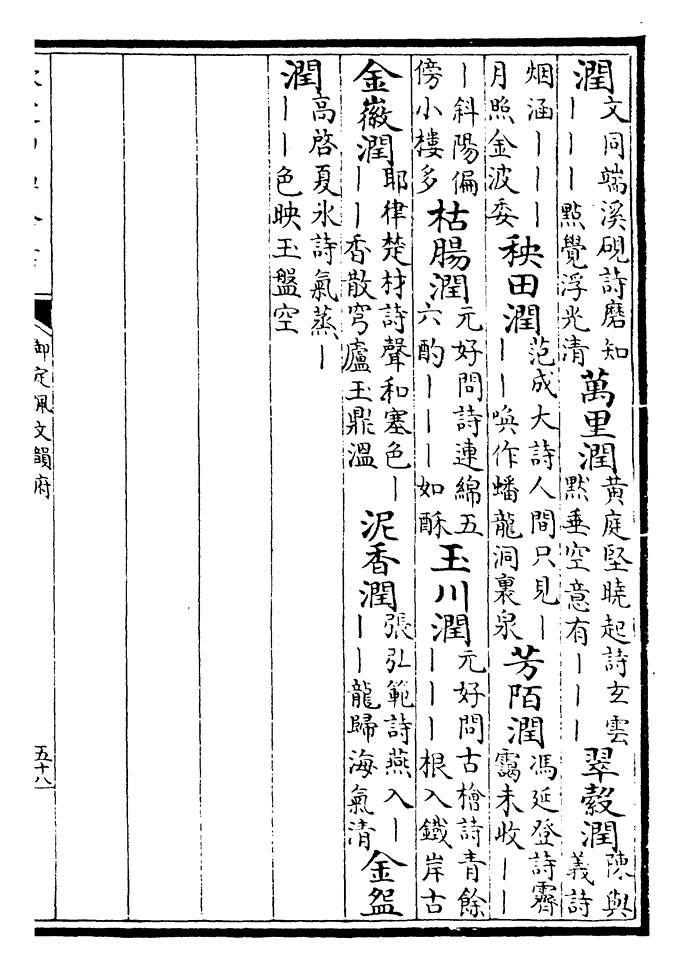 潤文同端溪硯詩磨知｜｜｜點覺浮光清萬里潤黃庭堅曉起詩玄雲默垂空意有｜｜｜翠縠潤陳與義詩
烟涵｜｜｜月照金波委秧田潤范成大詩人間只見｜｜｜喚作蟠龍洞裏泉芳陌潤馮延登詩霽靄未收｜｜
｜斜陽偏傍小樓多枯腸潤元好問詩連綿五六酌｜｜｜如酥玉川潤元好問古檜詩青餘｜｜｜根入鐵岸古
金徽潤耶律楚材詩聲和塞色｜｜｜香散穹廬玉鼎溫泥香潤張弘範詩燕入｜｜｜龍歸海氣清金盌
潤高啓夏氷詩氣蒸｜｜｜色映玉盤空
御定佩文韻府
五十八